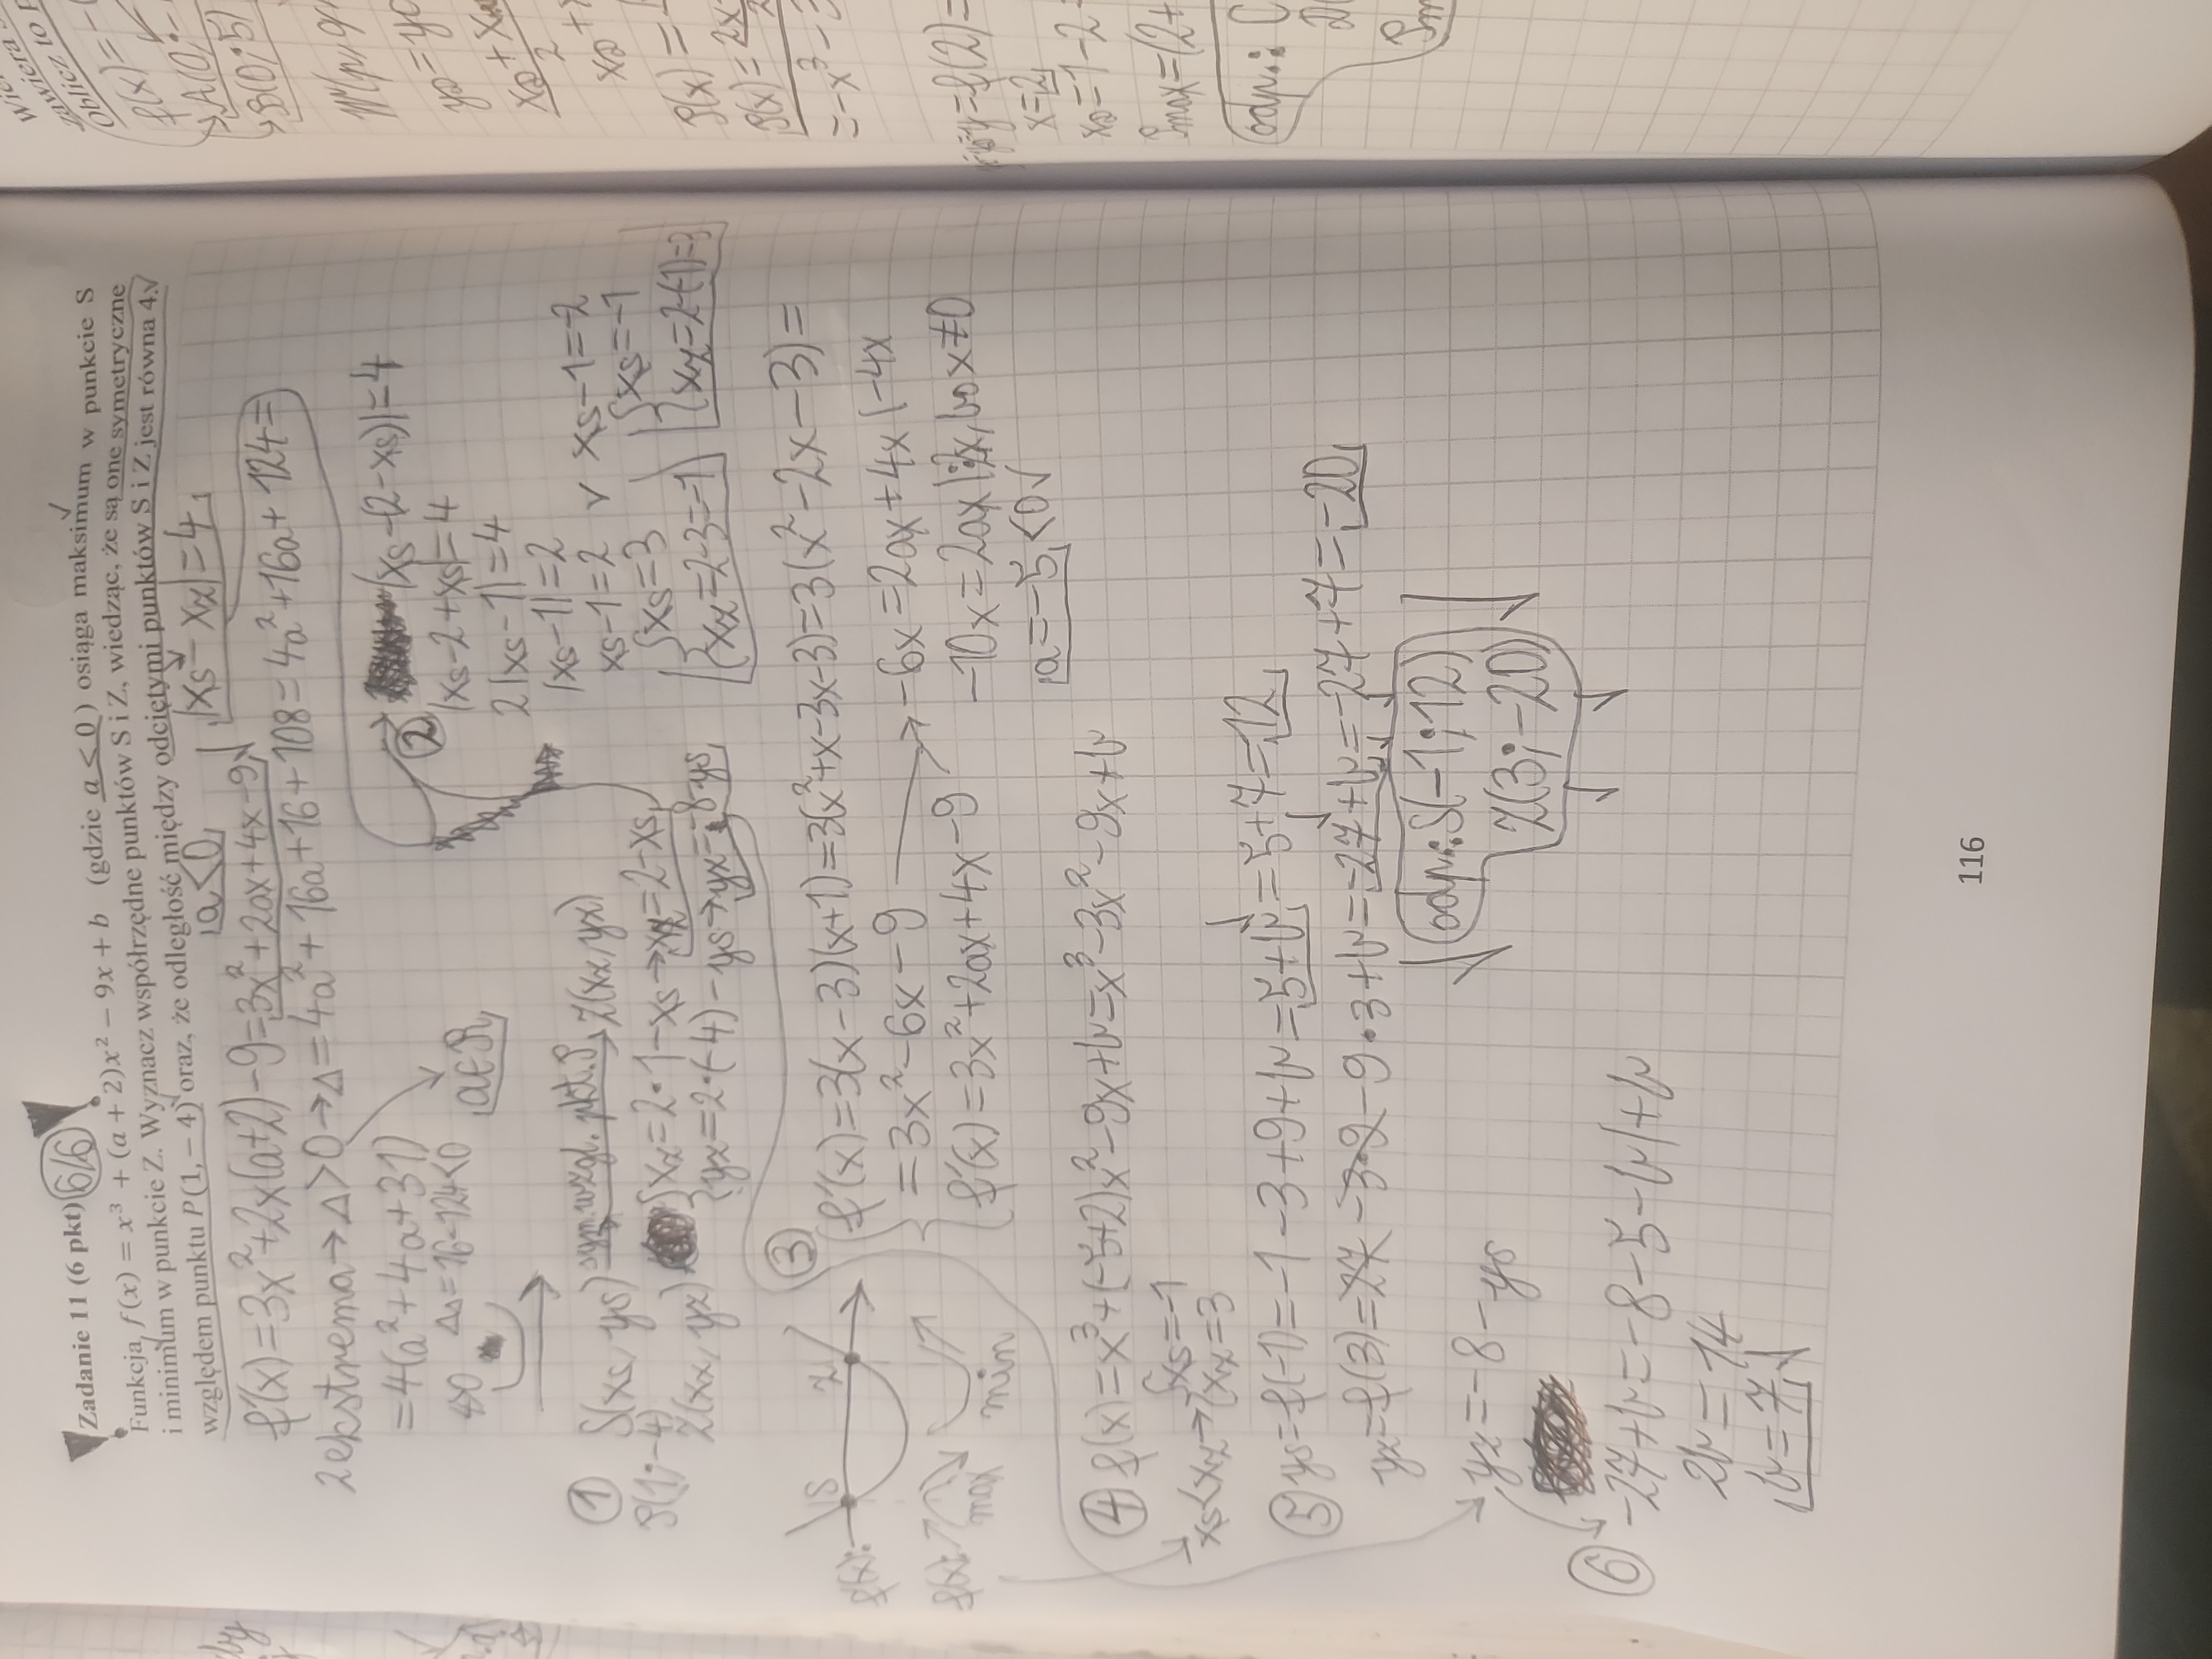 Zadanie 11 (6 pkt) 6/6
Funkcja f(x) = x³ + (a + 2)x² − 9x + b (gdzie a < 0) osiąga maksimum w punkcie S
i minimum w punkcie Z. Wyznacz współrzędne punktów S i Z, wiedząc, że są one symetryczne
względem punktu P(1, − 4) oraz, że odległość między odciętymi punktów S i Z jest równa 4.
a<0 |xs − xz| = 4
f'(x) = 3x² + 2x(a+2) − 9 = 3x² + 2ax + 4x − 9
2 ekstrema → Δ>0 → Δ = 4a² + 16a + 16 + 108 = 4a² + 16a + 124 =
= 4(a² + 4a + 31)
Δ = 16 − 124 < 0
a∈R
① S(xs, ys) sym. wzgl. pkt. P Z(xz, yz)
P(1; −4)
Z(xz, yz) { xz = 2·1 − xs → xz = 2 − xs
yz = 2·(−4) − ys → yz = −8 − ys
② |xs − (2 − xs)| = 4
|xs − 2 + xs| = 4
2|xs − 1| = 4
|xs − 1| = 2
xs − 1 = 2 v xs − 1 = −2
{ xs = 3 v { xs = −1
xz = 2−3 = −1 xz = 2−(−1) = 3
③ f'(x) = 3(x − 3)(x + 1) = 3(x² + x − 3x − 3) = 3(x² − 2x − 3) =
= 3x² − 6x − 9 → −6x = 2ax + 4x |−4x
f'(x) = 3x² + 2ax + 4x − 9 −10x = 2ax |:2x, bo x ≠ 0
a = −5 < 0 √
f'(x): S Z
f(x): max min
④ f(x) = x³ + (−5+2)x² − 9x + b = x³ − 3x² − 9x + b
xs < xz → { xs = −1
xz = 3
⑤ ys = f(−1) = −1 − 3 + 9 + b = 5 + b = 5 + 7 = 12
yz = f(3) = 27 − 3·9 − 9·3 + b = −27 + b = −27 + 7 = −20
odp.: S(−1; 12)
Z(3; −20)
yz = −8 − ys
⑥ −27 + b = −8 − 5 − b |+b
2b = 14
b = 7
116
f(x) =
A(0;
B(0; 5)
x = 2